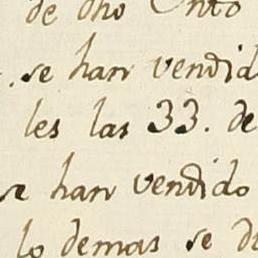 de dho Cnto
. se han vendid
les las 33. de
se han vendido
lo demas se d